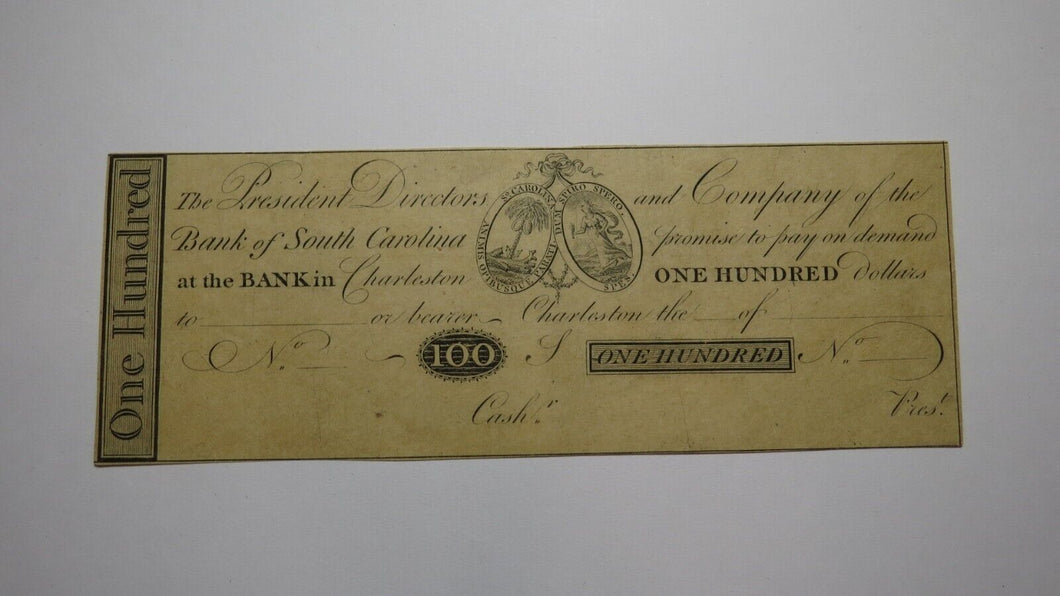 One Hundred
The President Directors and Company of the
Bank of South Carolina promise to pay on demand
at the BANK in Charleston ONE HUNDRED Dollars
to or bearer Charleston the of
So. CAROLINA
ANIMIS OPIBUSQUE PARATI.
DUM SPIRO SPERO.
SPES.
No. 100 $ ONE HUNDRED No.
Cashr. Prest.